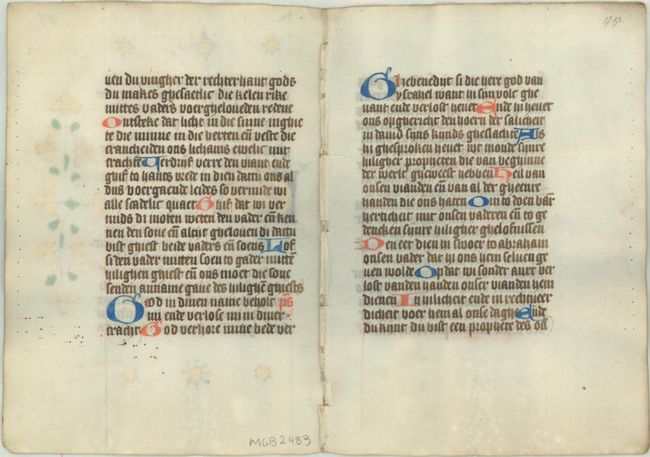 uen du vingher der rechterhant gods
du makes ghesaetlic die kelen rike
mittes vaders voergheloueden redene
Ontsteke dat licht in die sinne inghie
te die minne in die herten en̄ veste die
crancheiden ons lichams ewelic mit
tracht Verdrijf verre den viant ende
ghif to hants vrede in dien dattu ons al
dus voergaende leides so vermide wi
alle scadelic quaet Ghif dat wi ver
mids di moten weten den vader en̄ ken
nen den sone en̄ altijt ghelouen di dattu
biste ghiest beide vaders en̄ soens Lof
si den vader mitten soen to gader mittē
hilighen ghiest en̄ ons moet die sone
senden anname gaue des hilighē ghiests
God in dinen name beholt ps
mi ende verlose mi in diner
cracht God verhore mine bede ver
45
Ghebenedijt si die here god van
ysrahel want in sijn volc ghe
uant ende verlost heuet Ende in heuet
ons opghericht den hoern der salicheit
in dauid sijns kinds gheslachte Als
hi ghesproken heuet wt monde sijnre
hiligher propheten die van beghinne
der werlt gheweest hebben Heil van
onsen vianden en̄ van al der gheenre
handen die ons haten Om to doen bar̄
herticheit mit onsen vaderen en̄ to ge
dencken sijnre hiligher ghelofnissen
Den eet dien hi swoer to abraham
onsen vader dat hi ons hem seluen ge
uen wolde Opdat wi sonder anxt ver
lost vanden handen onser vianden hem
dienen In hilicheit ende in rechtueer
dicheit voer hem al onse daghe Ende
du kijnt du bist een prophete des
MGB2483